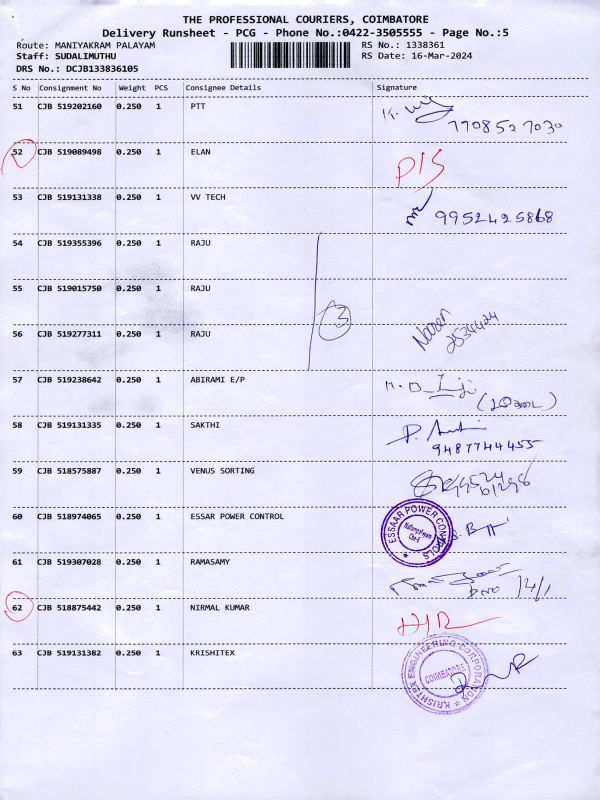 THE PROFESSIONAL COURIERS, COIMBATORE
Delivery Runsheet - PCG - Phone No.:0422-3505555 - Page No.:5
Route: MANIYAKRAM PALAYAM RS No.: 1338361
Staff: SUDALIMUTHU RS Date: 16-Mar-2024
DRS No.: DCJB133836105
S No Consignment No Weight PCS Consignee Details Signature
51 CJB 519202160 0.250 1 PTT
7708527030
52 CJB 519089498 0.250 1 ELAN
P/S
53 CJB 519131338 0.250 1 VV TECH
9952425868
54 CJB 519355396 0.250 1 RAJU
55 CJB 519015750 0.250 1 RAJU
3
56 CJB 519277311 0.250 1 RAJU
57 CJB 519238642 0.250 1 ABIRAMI E/P
58 CJB 519131335 0.250 1 SAKTHI
9487744455
59 CJB 518575887 0.250 1 VENUS SORTING
60 CJB 518974065 0.250 1 ESSAR POWER CONTROL
ESSAAR POWER CONTROLS
61 CJB 519307028 0.250 1 RAMASAMY
62 CJB 518875442 0.250 1 NIRMAL KUMAR
63 CJB 519131382 0.250 1 KRISHITEX
KRISHTEX ENGINEERING CORPORATION
COIMBATORE